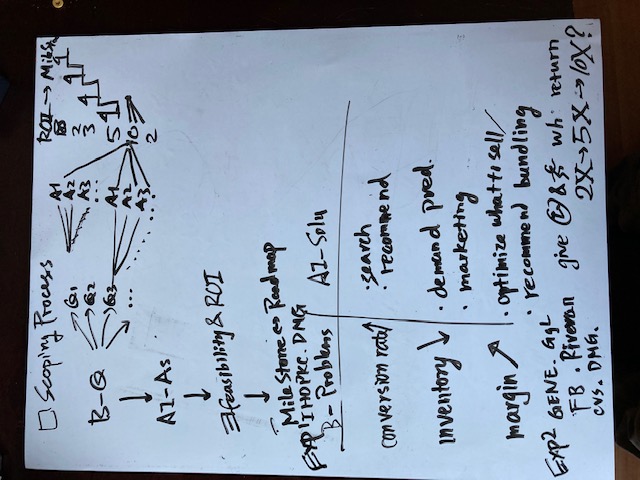 □ Scoping Process
ROI → MileSto
B-Q
Q1
Q2
Q3
...
A1
A2
A3
...
A1
A2
A3
...
2
3
5
10
2
AI-As
∃feasibility & ROI
MileStone ↔ Roadmap
Exp1 IHOPKC. DMG
B-Problems
AI-Solu
conversion rate ↑
·search
·recommend
inventory ↓
·demand pred.
·marketing
margin ↗
·optimize what to sell/
·recommend bundling
Exp2 GENE. GgL
FB.
CVS. DMG.
give & wh. return
2X→5X→10X?